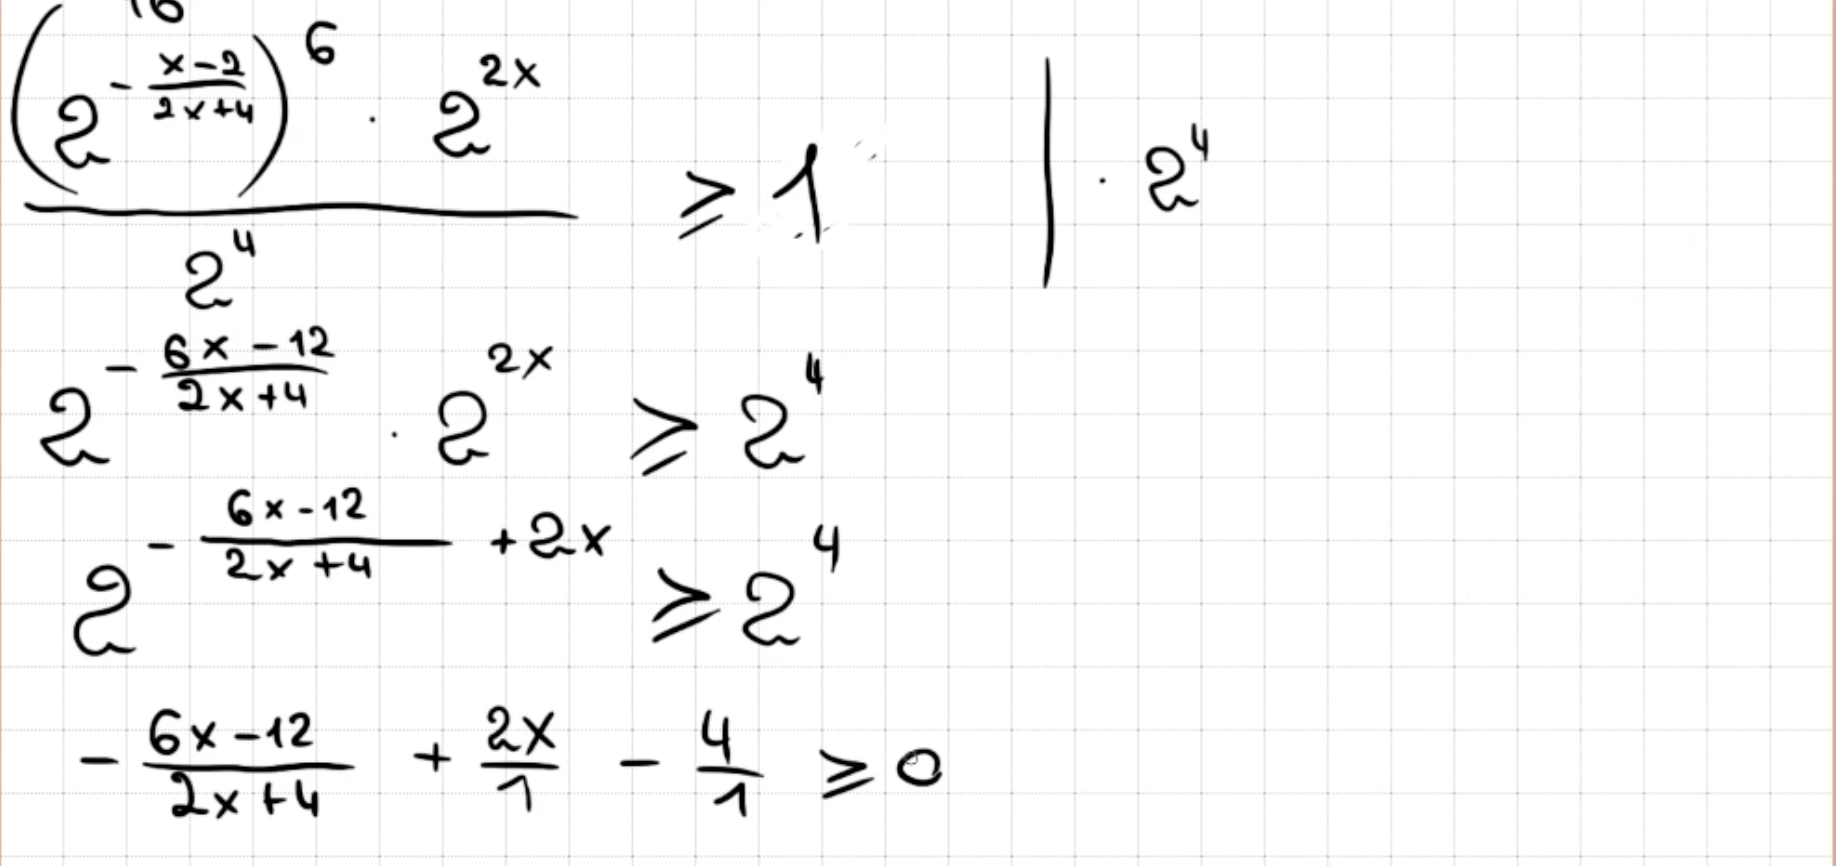 16
(2^(-(x-2)/(2x+4)))^6 · 2^(2x) / 2^4 ≥ 1 | · 2^4
2^(-(6x-12)/(2x+4)) · 2^(2x) ≥ 2^4
2^(-(6x-12)/(2x+4) + 2x) ≥ 2^4
-(6x-12)/(2x+4) + 2x/1 - 4/1 ≥ 0